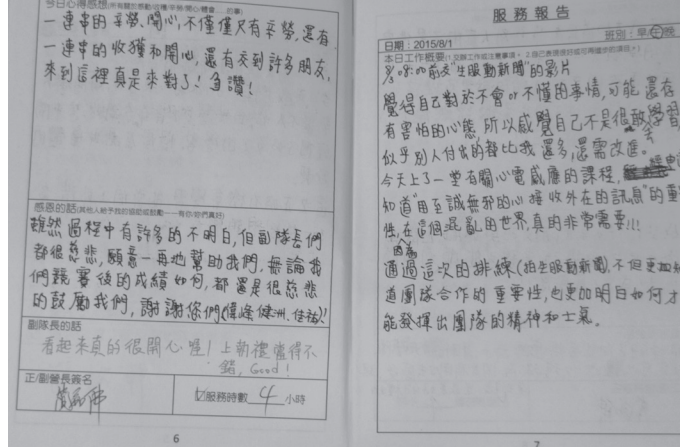 今日心得感想(所有關於感動/收穫/辛勞/開心/體會......的事)
一連串的辛勞、開心,不僅僅只有辛勞,還有
一連串的收獲和開心,還有交到許多朋友,
來到這裡真是來對了!真讚!
感恩的話(其他人給予我的協助或鼓勵~~有你/妳們真好)
雖然過程中有許多的不明白,但副隊長們
都很慈悲,願意一再地幫助我們,無論我
們競賽後的成績如何,都還是很慈悲
的鼓勵我們,謝謝您們(偉燦、健洲、佳祐)!
副隊長的話
看起來真的很開心喔!上新禮懂得不
錯,Good!
正/副營長簽名
服務時數 4 小時
6
服務報告
日期:2015/8/1
班別:早 午 晚
本日工作概要
08:00前交"生服動新聞"的影片
覺得自己對於不會or不懂的事情,可能還存
有害怕的心態,所以感覺自己不是很敢去學習,
似乎別人付出的都比我還多,還需改進。
今天上了一堂有關心電感應的課程,
知道"用至誠無邪的心接收外在的訊息"的重
性,在這個混亂的世界,真的非常需要!!!
因為
通過這次的排練(拍生服動新聞),不但更加知
道團隊合作的重要性,也更加明白如何才
能發揮出團隊的精神和士氣。
7